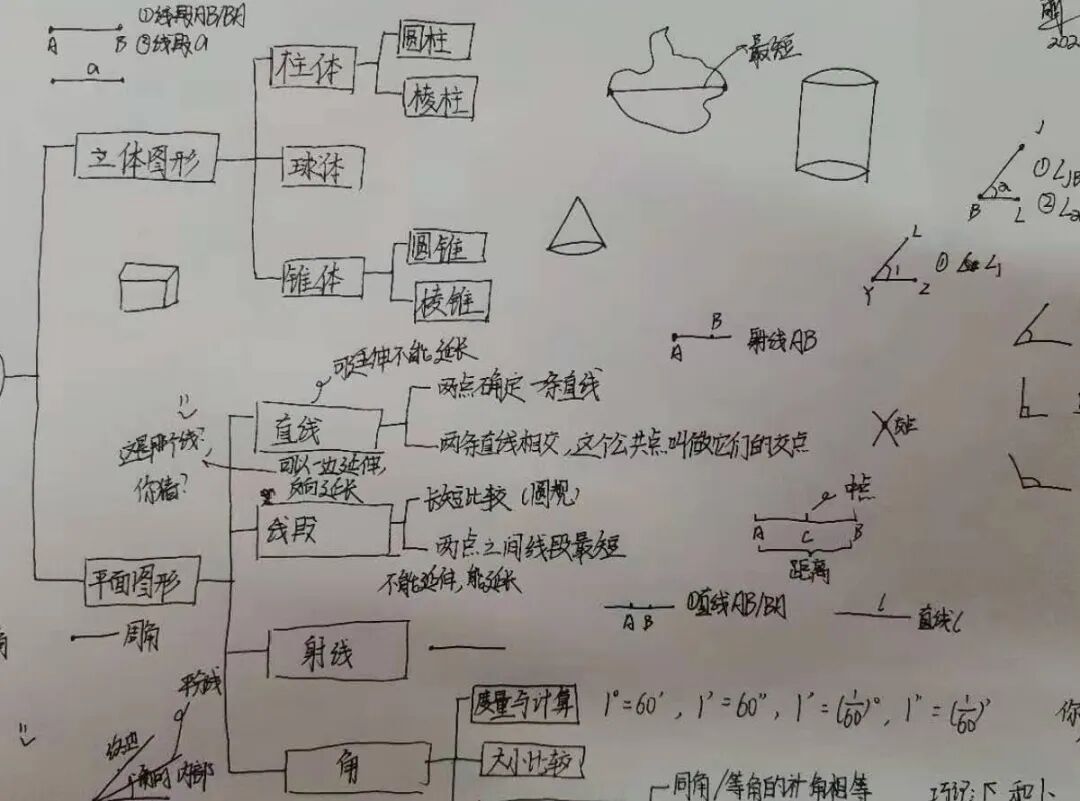 ①线段AB/BA
A B ②线段a
a
柱体
圆柱
棱柱
最短
立体图形
球体
锥体
圆锥
棱锥
J
①∠JB
B 2 L ②∠2
L
Y 1 Z ① ∠1
B
A 射线AB
可延伸不能延长
直线
两点确定一条直线
两条直线相交,这个公共点叫做它们的交点
交点
这是那个线?
你猜?
可以一边延伸,
反向延长
线段
长短比较(圆规)
两点之间线段最短
不能延伸,能延长
中点
A C B
距离
平面图形
A B ①直线AB/BA
l 直线l
周角
射线
平分线
角
度量与计算
1°=60′,1′=60″,1′=(1/60)°,1″=(1/60)′
你
大小比较
内部
同角/等角的补角相等
巧记:下和卜